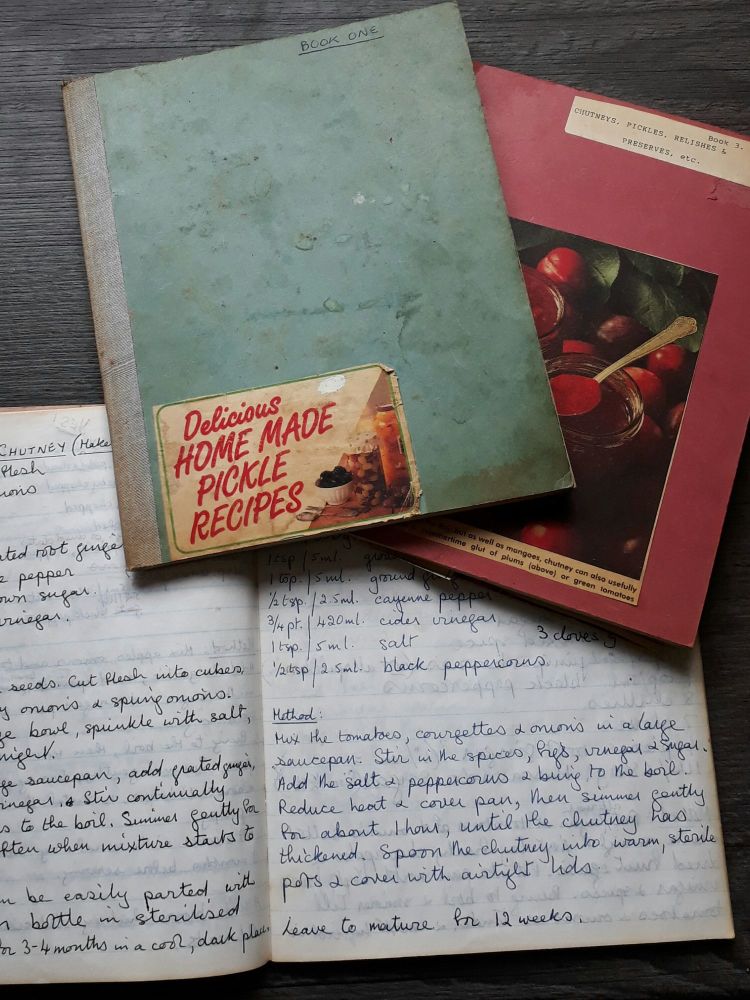 BOOK ONE
Delicious
HOME MADE
PICKLE
RECIPES
Book 3.
CHUTNEYS, PICKLES, RELISHES &
PRESERVES, etc.
but as well as mangoes, chutney can also usefully
summertime glut of plums (above) or green tomatoes
CHUTNEY (Make
flesh
onions
ated root ginge
pepper
own sugar.
vinegar.
seeds. Cut flesh into cubes,
onions & spring onions.
ge bowl, sprinkle with salt,
night.
ge saucepan, add grated ginger,
vinegar. & Stir continually
s to the boil. Summer gently for
ften when mixture starts to
n be easily parted with
n bottle in sterilised
for 3-4 months in a cool, dark place.
1 tsp / 5 ml.
1 tsp. / 5 ml. ground
1/2 tsp. / 2.5ml. cayenne pepper
3/4 pt. / 420ml. cider vinegar
1 tsp / 5 ml. salt
3 cloves
1/2 tsp / 2.5ml. black peppercorns
Method:
Mix the tomatoes, courgettes & onions in a large
saucepan. Stir in the spices, figs, vinegar & sugar.
Add the salt & peppercorns & bring to the boil.
Reduce heat & cover pan, then simmer gently
for about 1 hour, until the chutney has
thickened. Spoon the chutney into warm, sterile
pots & cover with airtight lids
Leave to mature for 12 weeks.